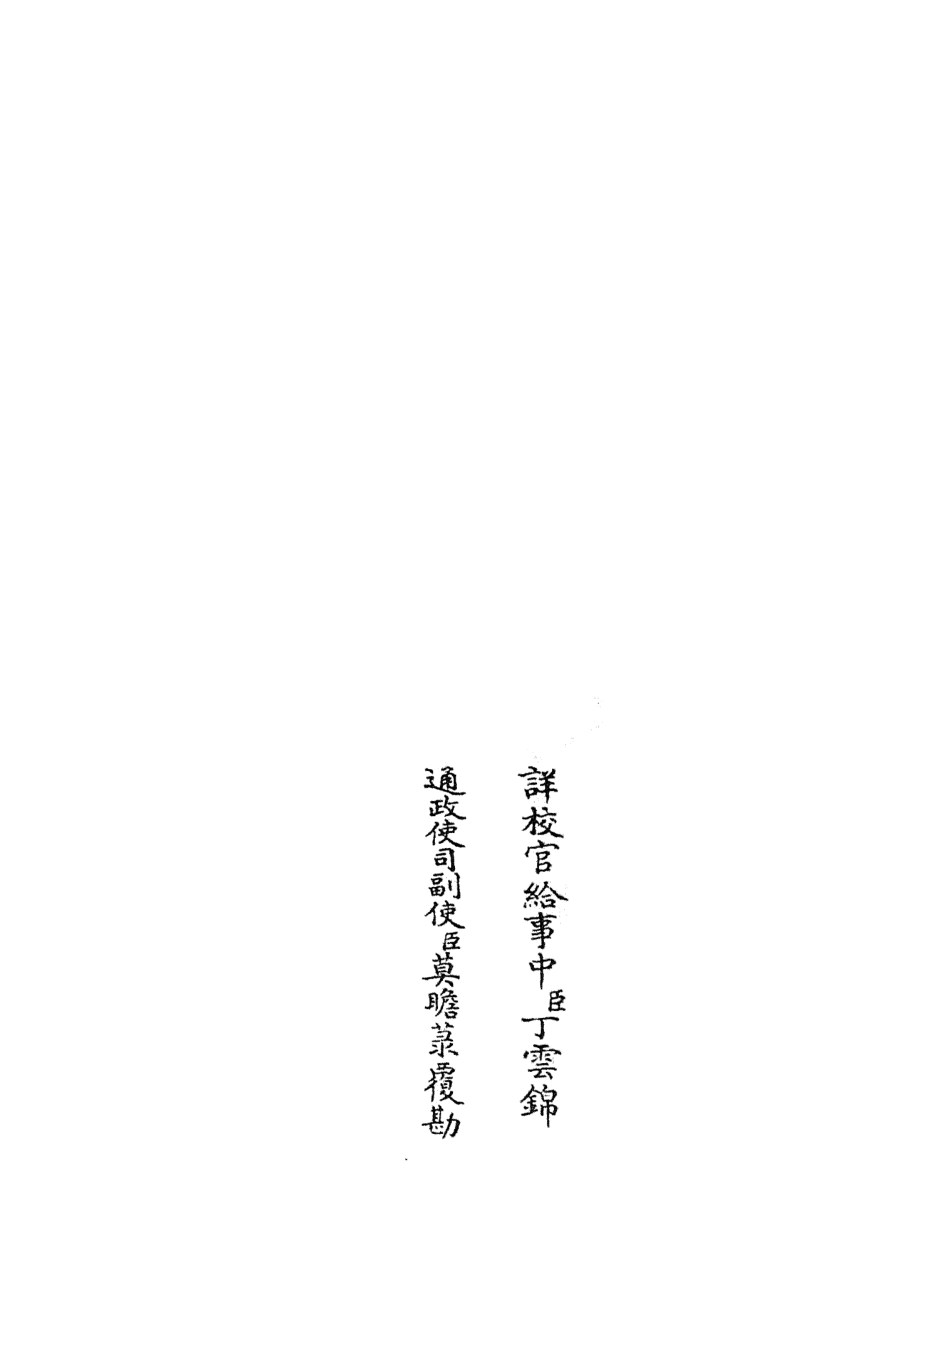 詳校官給事中臣丁雲錦
通政使司副使臣莫瞻菉覆勘